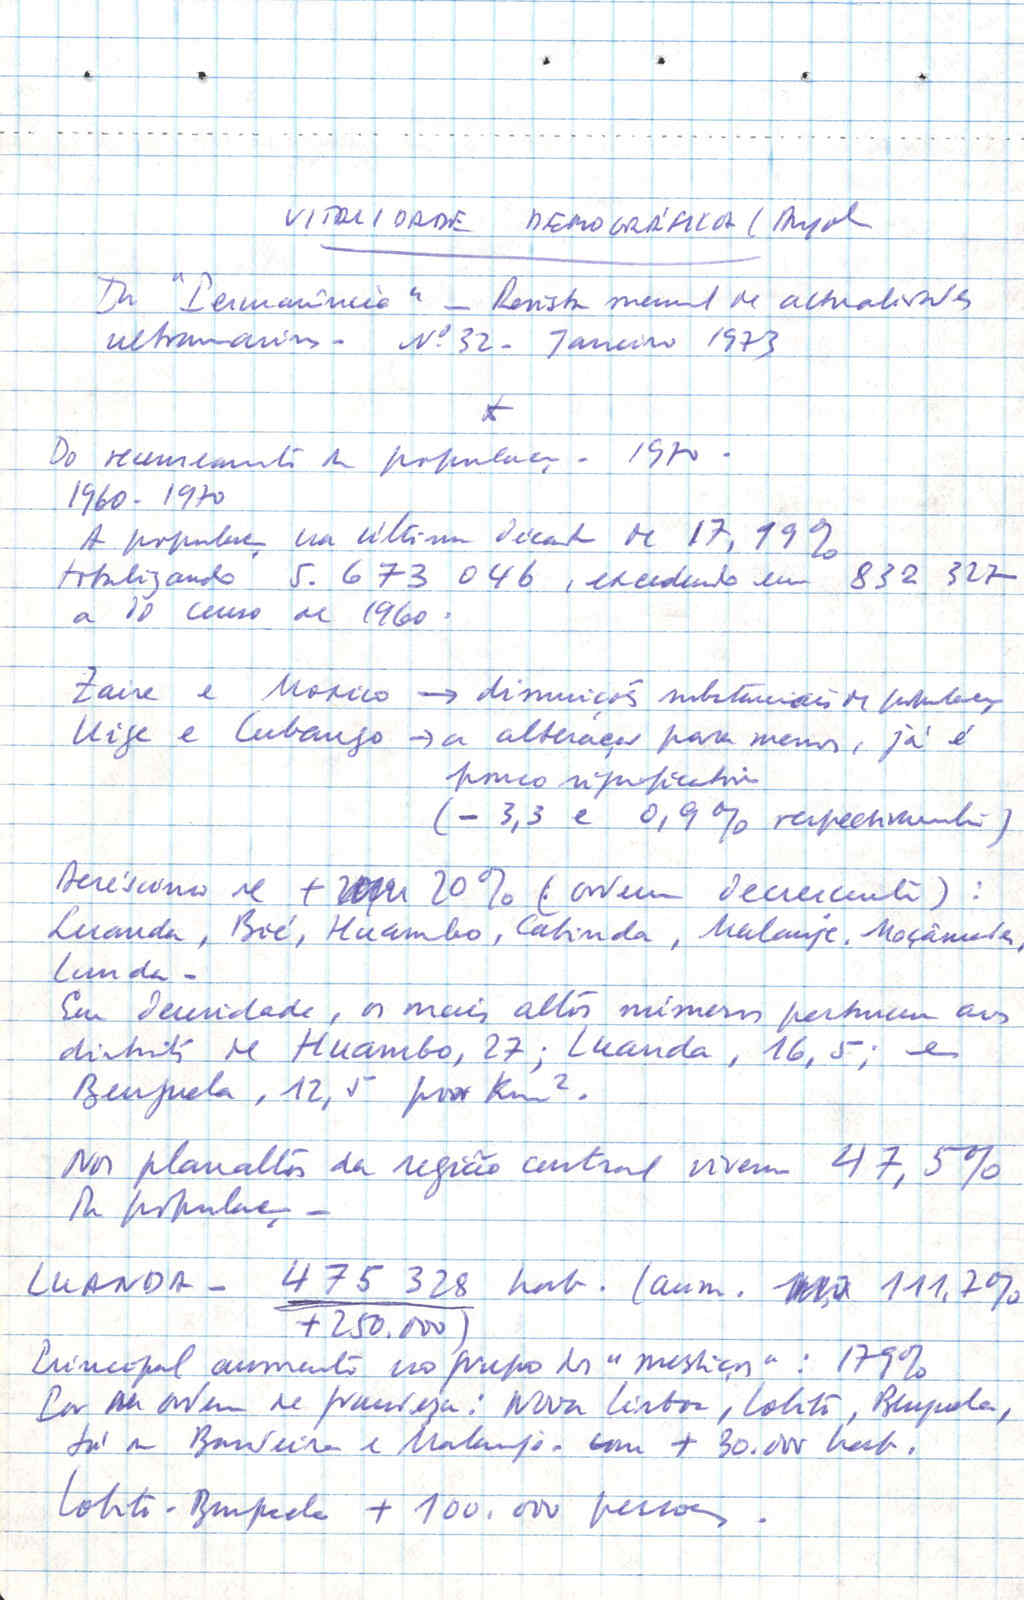 VITALIDADE DEMOGRÁFICA (Angola
Da "Permanência" - Revista mensal de actualidades
ultramarinas - Nº 32 - Janeiro 1973
Do recenseamento da população - 1970 -
1960 - 1970
A população na última década de 17,19%
totalizando 5.673 046, excedendo em 832 327
a do censo de 1960.
Zaire e Moxico → diminuições substanciais de população
Uige e Cubango → a alteração para menos, já é
pouco significativa
(- 3,3 e 0,9% respectivamente)
Acréscimo de + 20% (ordem decrescente) :
Luanda, Bié, Huambo, Cabinda, Malanje, Moçâmedes,
Lunda -
Em densidade, os mais altos números pertencem aos
distritos de Huambo, 27; Luanda, 16,5; e
Benguela, 12,5 por Km².
Nos planaltos da região central vivem 47,5%
da população -
LUANDA - 475 328 hab. (aum. 111,7%
+250.000)
Principal aumento no grupo dos "mestiços" : 179%
Por ordem de grandeza: Nova Lisboa, Lobito, Benguela,
Sá da Bandeira e Malanje - com + 30.000 hab.
Lobito - Benguela + 100.000 pessoas.